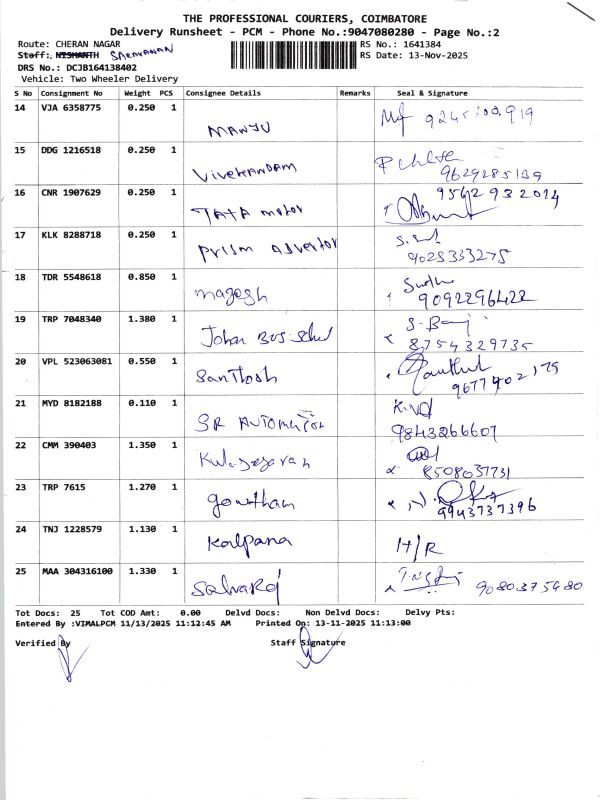 THE PROFESSIONAL COURIERS, COIMBATORE
Delivery Runsheet - PCM - Phone No.:9047080280 - Page No.:2
Route: CHERAN NAGAR RS No.: 1641384
Staff: NISHANTH SARAVANAN RS Date: 13-Nov-2025
DRS No.: DCJB164138402
Vehicle: Two Wheeler Delivery
S No Consignment No Weight PCS Consignee Details Remarks Seal & Signature
14 VJA 6358775 0.250 1 MANJU 9245300919
15 DDG 1216518 0.250 1 VIVEKANDAM 9629285139
16 CNR 1907629 0.250 1 TATA motor 9562932014
17 KLK 8288718 0.250 1 Prism advertor 9025333275
18 TDR 5548618 0.850 1 magesh Sudha 9092296422
19 TRP 7048340 1.380 1 Johan 8754329735
20 VPL 523063081 0.550 1 Santhosh 9677402175
21 MYD 8182188 0.110 1 SR 9843266607
22 CMM 390403 1.350 1 8508037731
23 TRP 7615 1.270 1 gowtham 9943737396
24 TNJ 1228579 1.130 1 Kalpana H/R
25 MAA 304316100 1.330 1 Selvaraj 9080375480
Tot Docs: 25 Tot COD Amt: 0.00 Delvd Docs: Non Delvd Docs: Delvy Pts:
Entered By :VIMALPCM 11/13/2025 11:12:45 AM Printed On: 13-11-2025 11:13:00
Verified By Staff Signature